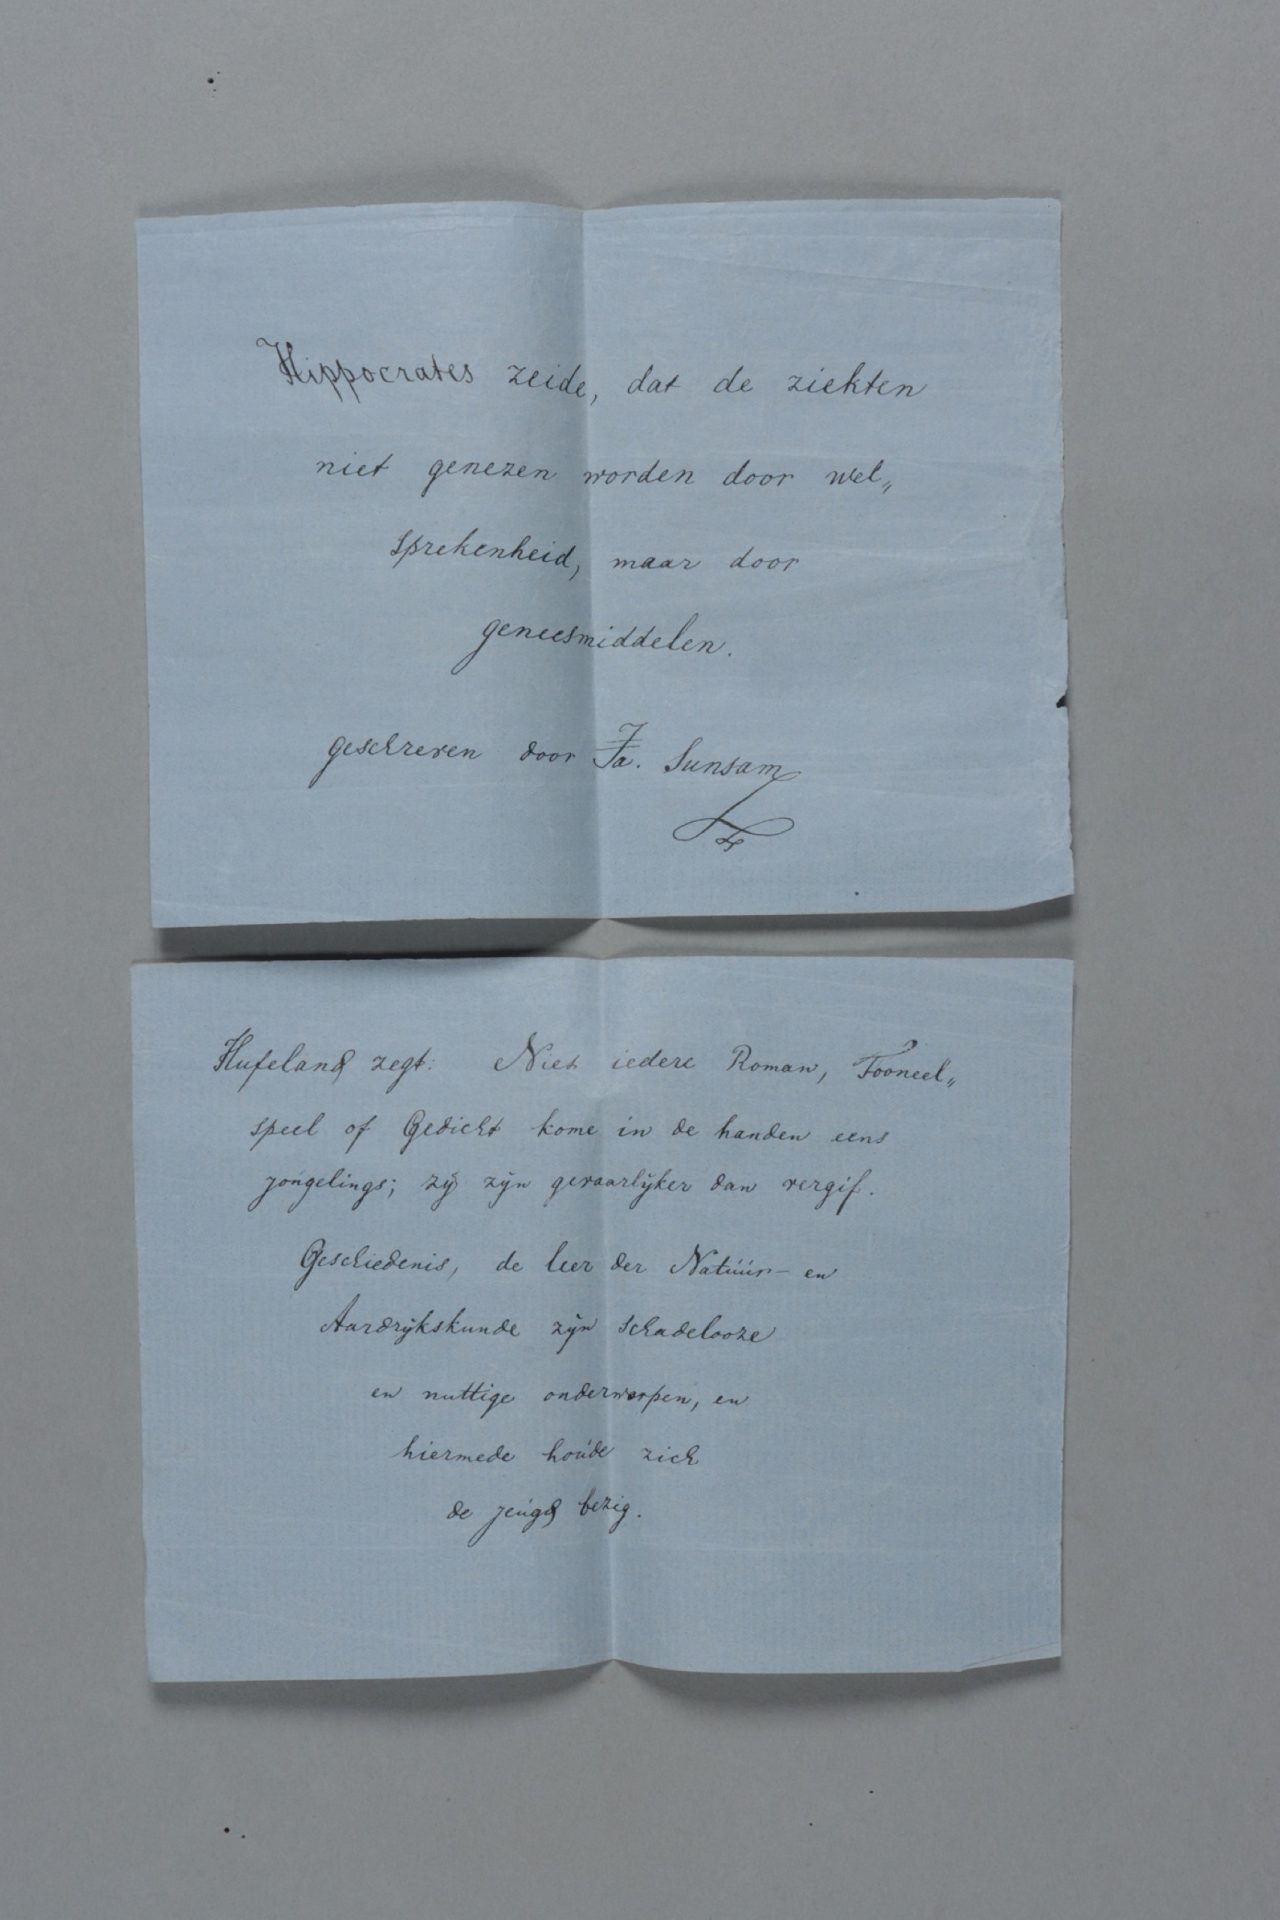 Hippocrates zeide, dat de ziekten
niet genezen worden door wel„
sprekenheid, maar door
geneesmiddelen.
geschreven door Ja. Sunsam
Hufeland zegt: Niet iedere Roman, Tooneel„
speel of Gedicht kome in de handen eens
jongelings; zÿ zÿn gevaarlÿker dan vergif.
Geschiedenis, de leer der Natuur- en
Aardrÿkskunde zÿn schadelooze
en nuttige onderwerpen, en
hiermede houde zich
de jeugd bezig.